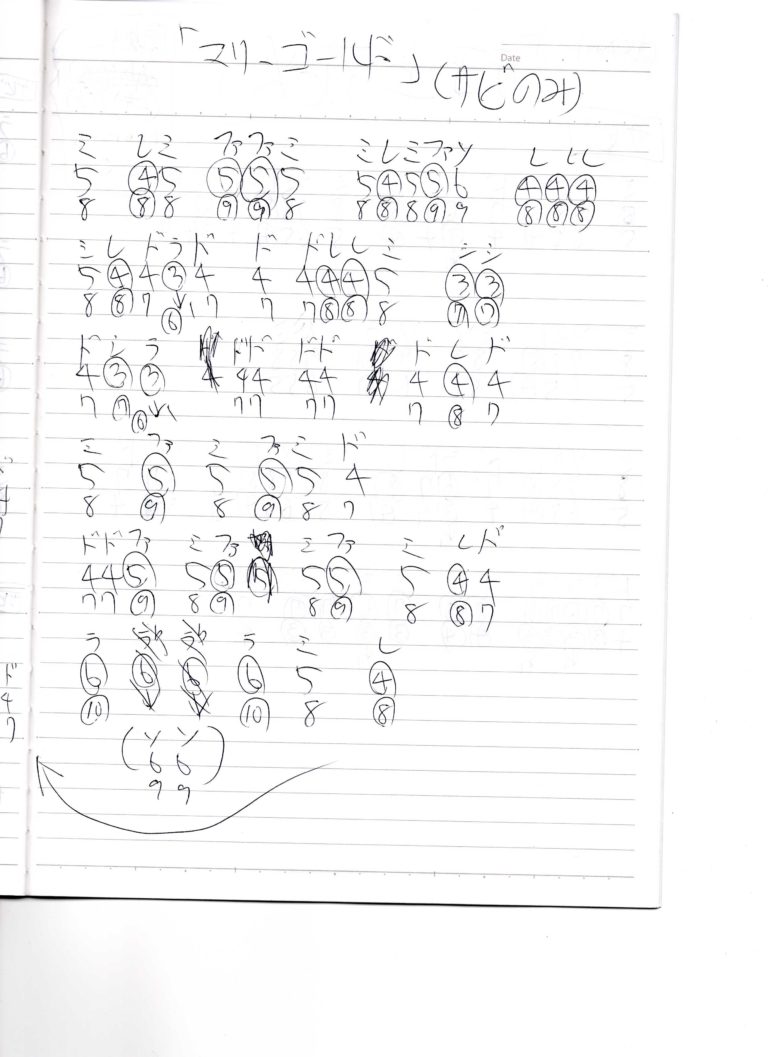 「マリーゴールド」
Date
(サビのみ)
ミ レミ ファファミ ミレミファソ レ レレ
5 ④5 ⑤⑤5 5④5⑤6 ④④④
8 ⑧8 ⑨⑨8 8⑧8⑨9 ⑧⑧⑧
ミ レ ドラド ド ドレレ ミ シシ
5 ④ 4③4 4 4④④5 ③③
8 ⑧ 7↓7 7 7⑧⑧8 ⑦⑦
⑥
ド シ ラ ドド ドド ド レ ド
4 ③ ③ 44 44 4 ④ 4
7 ⑦ ↓ 77 77 7 ⑧ 7
⑥
ミ ファ ミ ファミ ド
5 ⑤ 5 ⑤5 4
8 ⑨ 8 ⑨8 7
ドドファ ミファ ミファ ミ レド
44⑤ 5⑤ 5⑤ 5 ④4
77⑨ 8⑨ 8⑨ 8 ⑧7
ラ ラ ミ レ
⑥ ⑥ ⑥ ⑥ 5 ④
⑩ ⑩ 8 ⑧
(ソソ)
6 6
9 9
ド
4
7